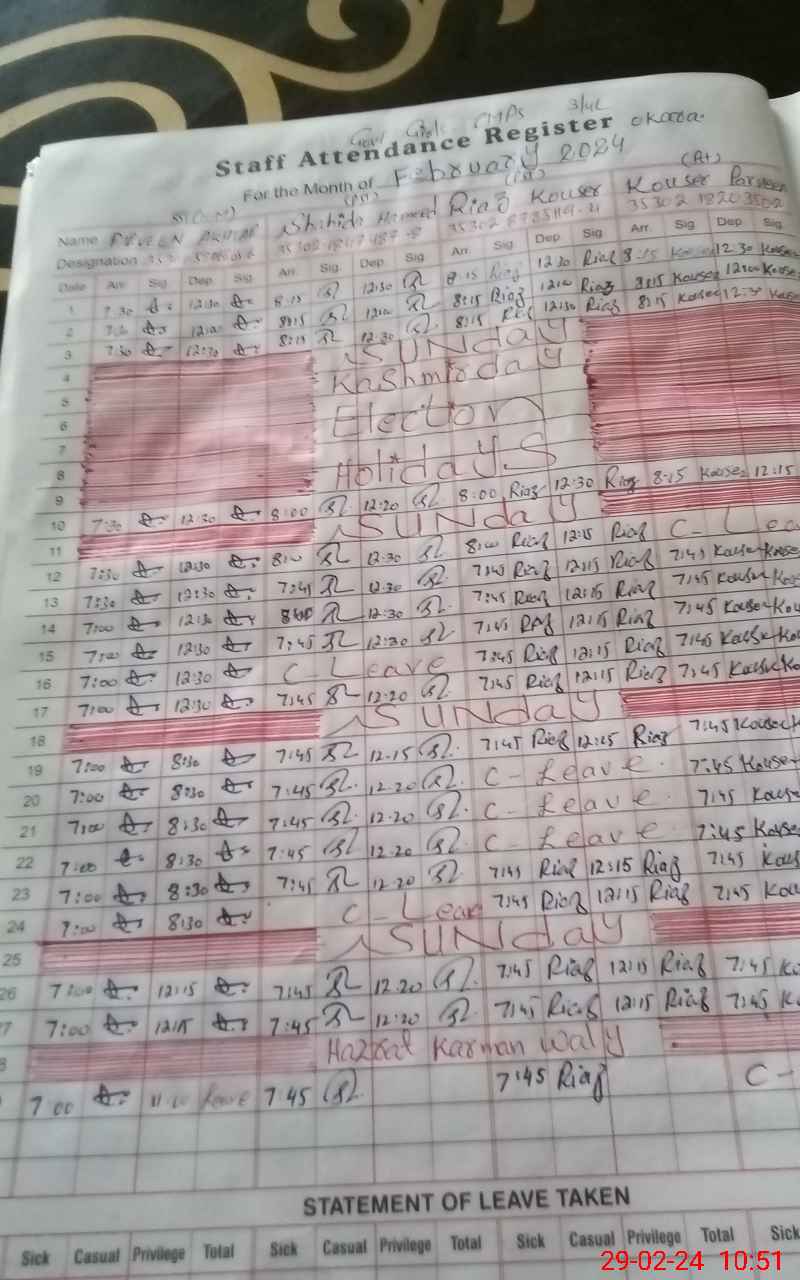 Govt Girls CMPS 3/4L
Staff Attendance Register Okara.
For the Month of February 2024
Name Shahida Hameed Riaz Kouser Kouser Parveen
Designation
Date Arr. Sig Dep Sig Arr. Sig Dep Sig Arr. Sig Dep Sig Arr. Sig Dep Sig
1 7:30 12:30 8:15 12:30 8:15 Riaz 12:30 Riaz 8:15 Kouser 12:30 Kouser
2 7:30 12:00 8:15 12:00 8:15 Riaz 12:00 Riaz 8:15 Kouser 12:00 Kouser
3 7:30 12:30 8:15 12:30 8:15 Riaz 12:30 Riaz 8:15 Kouser 12:30 Kouser
4 SUNday
5 Kashmirday
6 Elector
7
8 HolidayS
9
10 7:30 12:30 8:00 12:20 8:00 Riaz 12:30 Riaz 8:15 Kouser 12:15
11 SUNday
12 7:30 12:30 8:00 12:30 8:00 Riaz 12:15 Riaz C-Lea
13 7:30 12:30 7:45 12:30 7:45 Riaz 12:15 Riaz 7:45 Kouser Kouser
14 7:00 12:30 8:00 12:30 7:45 Riaz 12:15 Riaz 7:45 Kouser Kou
15 7:00 12:30 7:45 12:30 7:45 Riaz 12:15 Riaz 7:45 Kouser Kou
16 7:00 12:30 C Leave 7:45 Riaz 12:15 Riaz 7:45 Kouser Kou
17 7:00 12:30 7:45 12:20 7:45 Riaz 12:15 Riaz 7:45 Kouser Ko
18 SUNday
19 7:00 8:30 7:45 12.15 7:45 Riaz 12:15 Riaz 7:45 Kouser K
20 7:00 8:30 7:45 12.20 C-Leave. 7:45 Kouser
21 7:00 8:30 7:45 12.20 C-Leave. 7:45 Kouse
22 7:00 8:30 7:45 12.20 C Leave. 7:45 Kouse
23 7:00 8:30 7:45 12.20 7:45 Riaz 12:15 Riaz 7:45 Kous
24 7:00 8:30 C-Leave 7:45 Riaz 12:15 Riaz 7:45 Kou
25 SUNday
26 7:00 12:15 7:45 12.20 7:45 Riaz 12:15 Riaz 7:45 Ko
7 7:00 12:15 7:45 12:20 7:45 Riaz 12:15 Riaz 7:45 K
8 Hazrat Karman waly
7:00 11:00 Leave 7:45 7:45 Riaz C-
STATEMENT OF LEAVE TAKEN
Sick Casual Privilege Total Sick Casual Privilege Total Sick Casual Privilege Total Sick
29-02-24 10:51